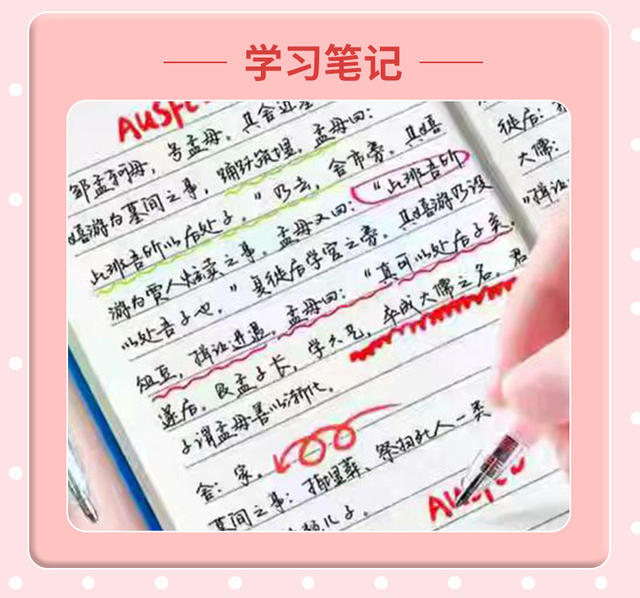 学习笔记
邹孟轲母，号孟母，其舍近墓
嬉游为墓间之事，踊跃筑埋，孟母曰：
此非吾所以居处子，"乃去，舍市旁，其嬉
游为贾人炫卖之事，孟母又曰："此非吾所
以处吾子也。"复徙居学宫之旁，其嬉游乃设
俎豆，揖让进退，孟母曰："真可以处居子矣。
遂居，及孟子长，学六艺，卒成大儒之名，君
子谓孟母善以渐化。
舍：家。
墓间之事：指埋葬、祭扫死人一类
徙居：
大儒：
揖让：